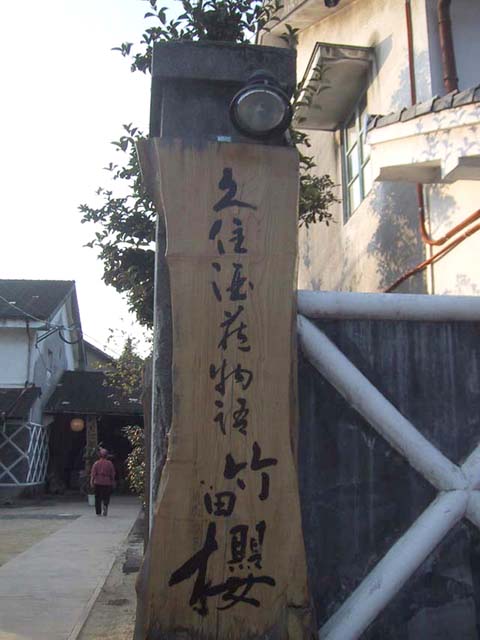 久住酒蔵物語
竹田
櫻